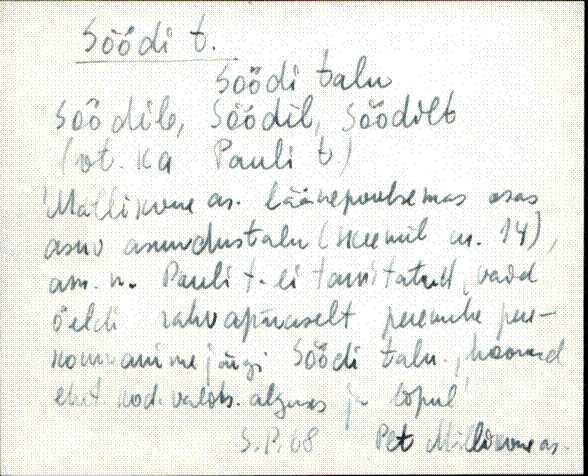 Söödi t.
Söödi talu
Söödile, Söödil, Söödilt
(vt. ka Pauli t.)
'Mällikvere as. läänepoolsemas osas
asuv asundustalu (skeemil nr. 14),
am. n. Pauli t. ei tarvitatud, vaid
öeldi rahvapäraselt peremehe pere-
konnanime järgi Söödi talu., hooned
ehit. kod. valits. alguses ja lõpul'
S.P. 68 Pet Mällikvere as.